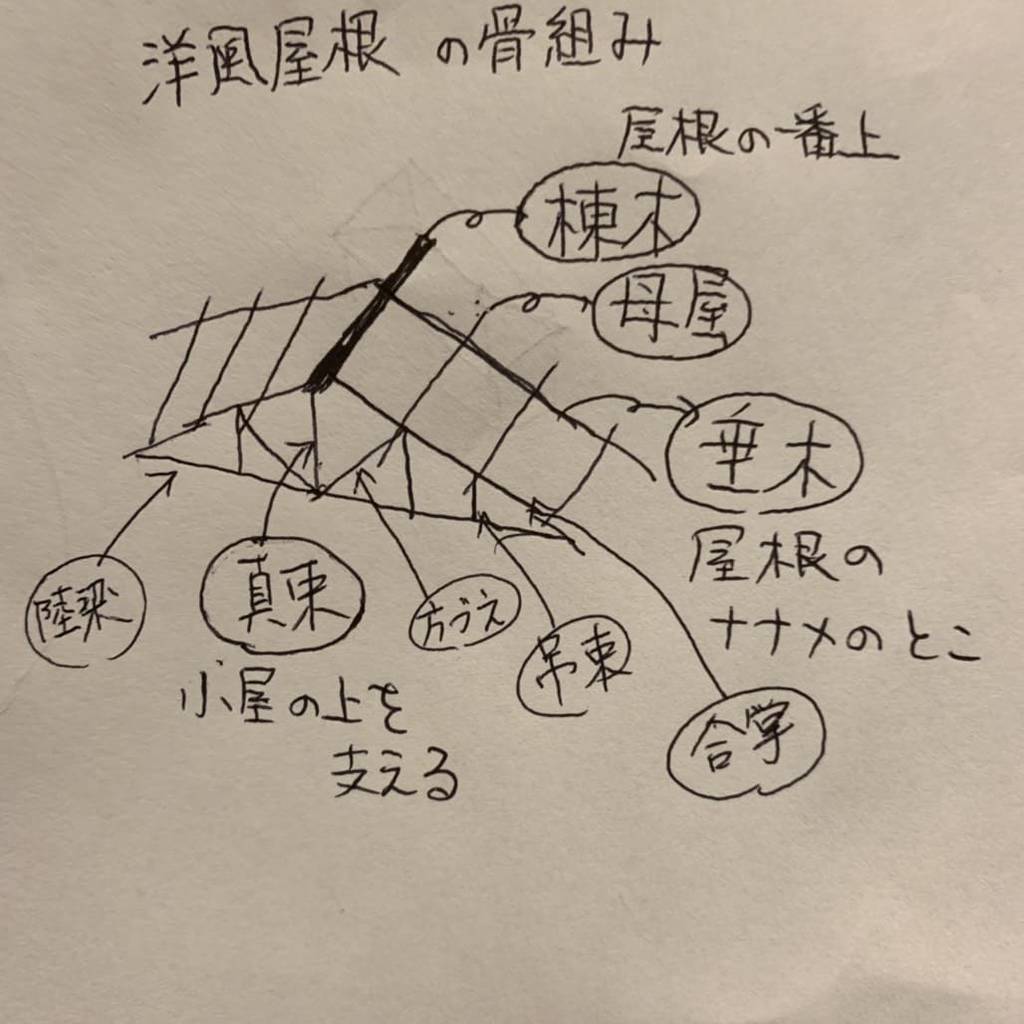 洋風屋根の骨組み
屋根の一番上
棟木
母屋
垂木
屋根の
ナナメのとこ
陸梁
真束
小屋の上を
支える
方づえ
吊束
合掌